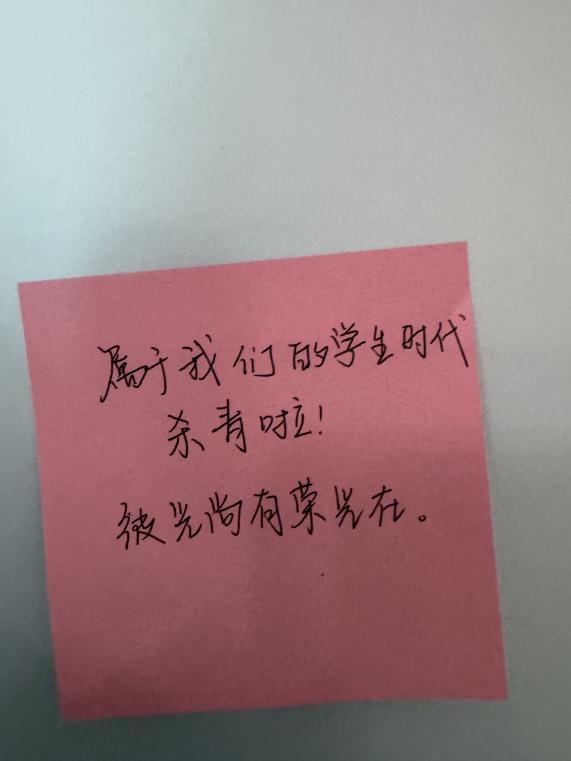 属于我们的学生时代
杀青啦!
彼光尚有荣光在。